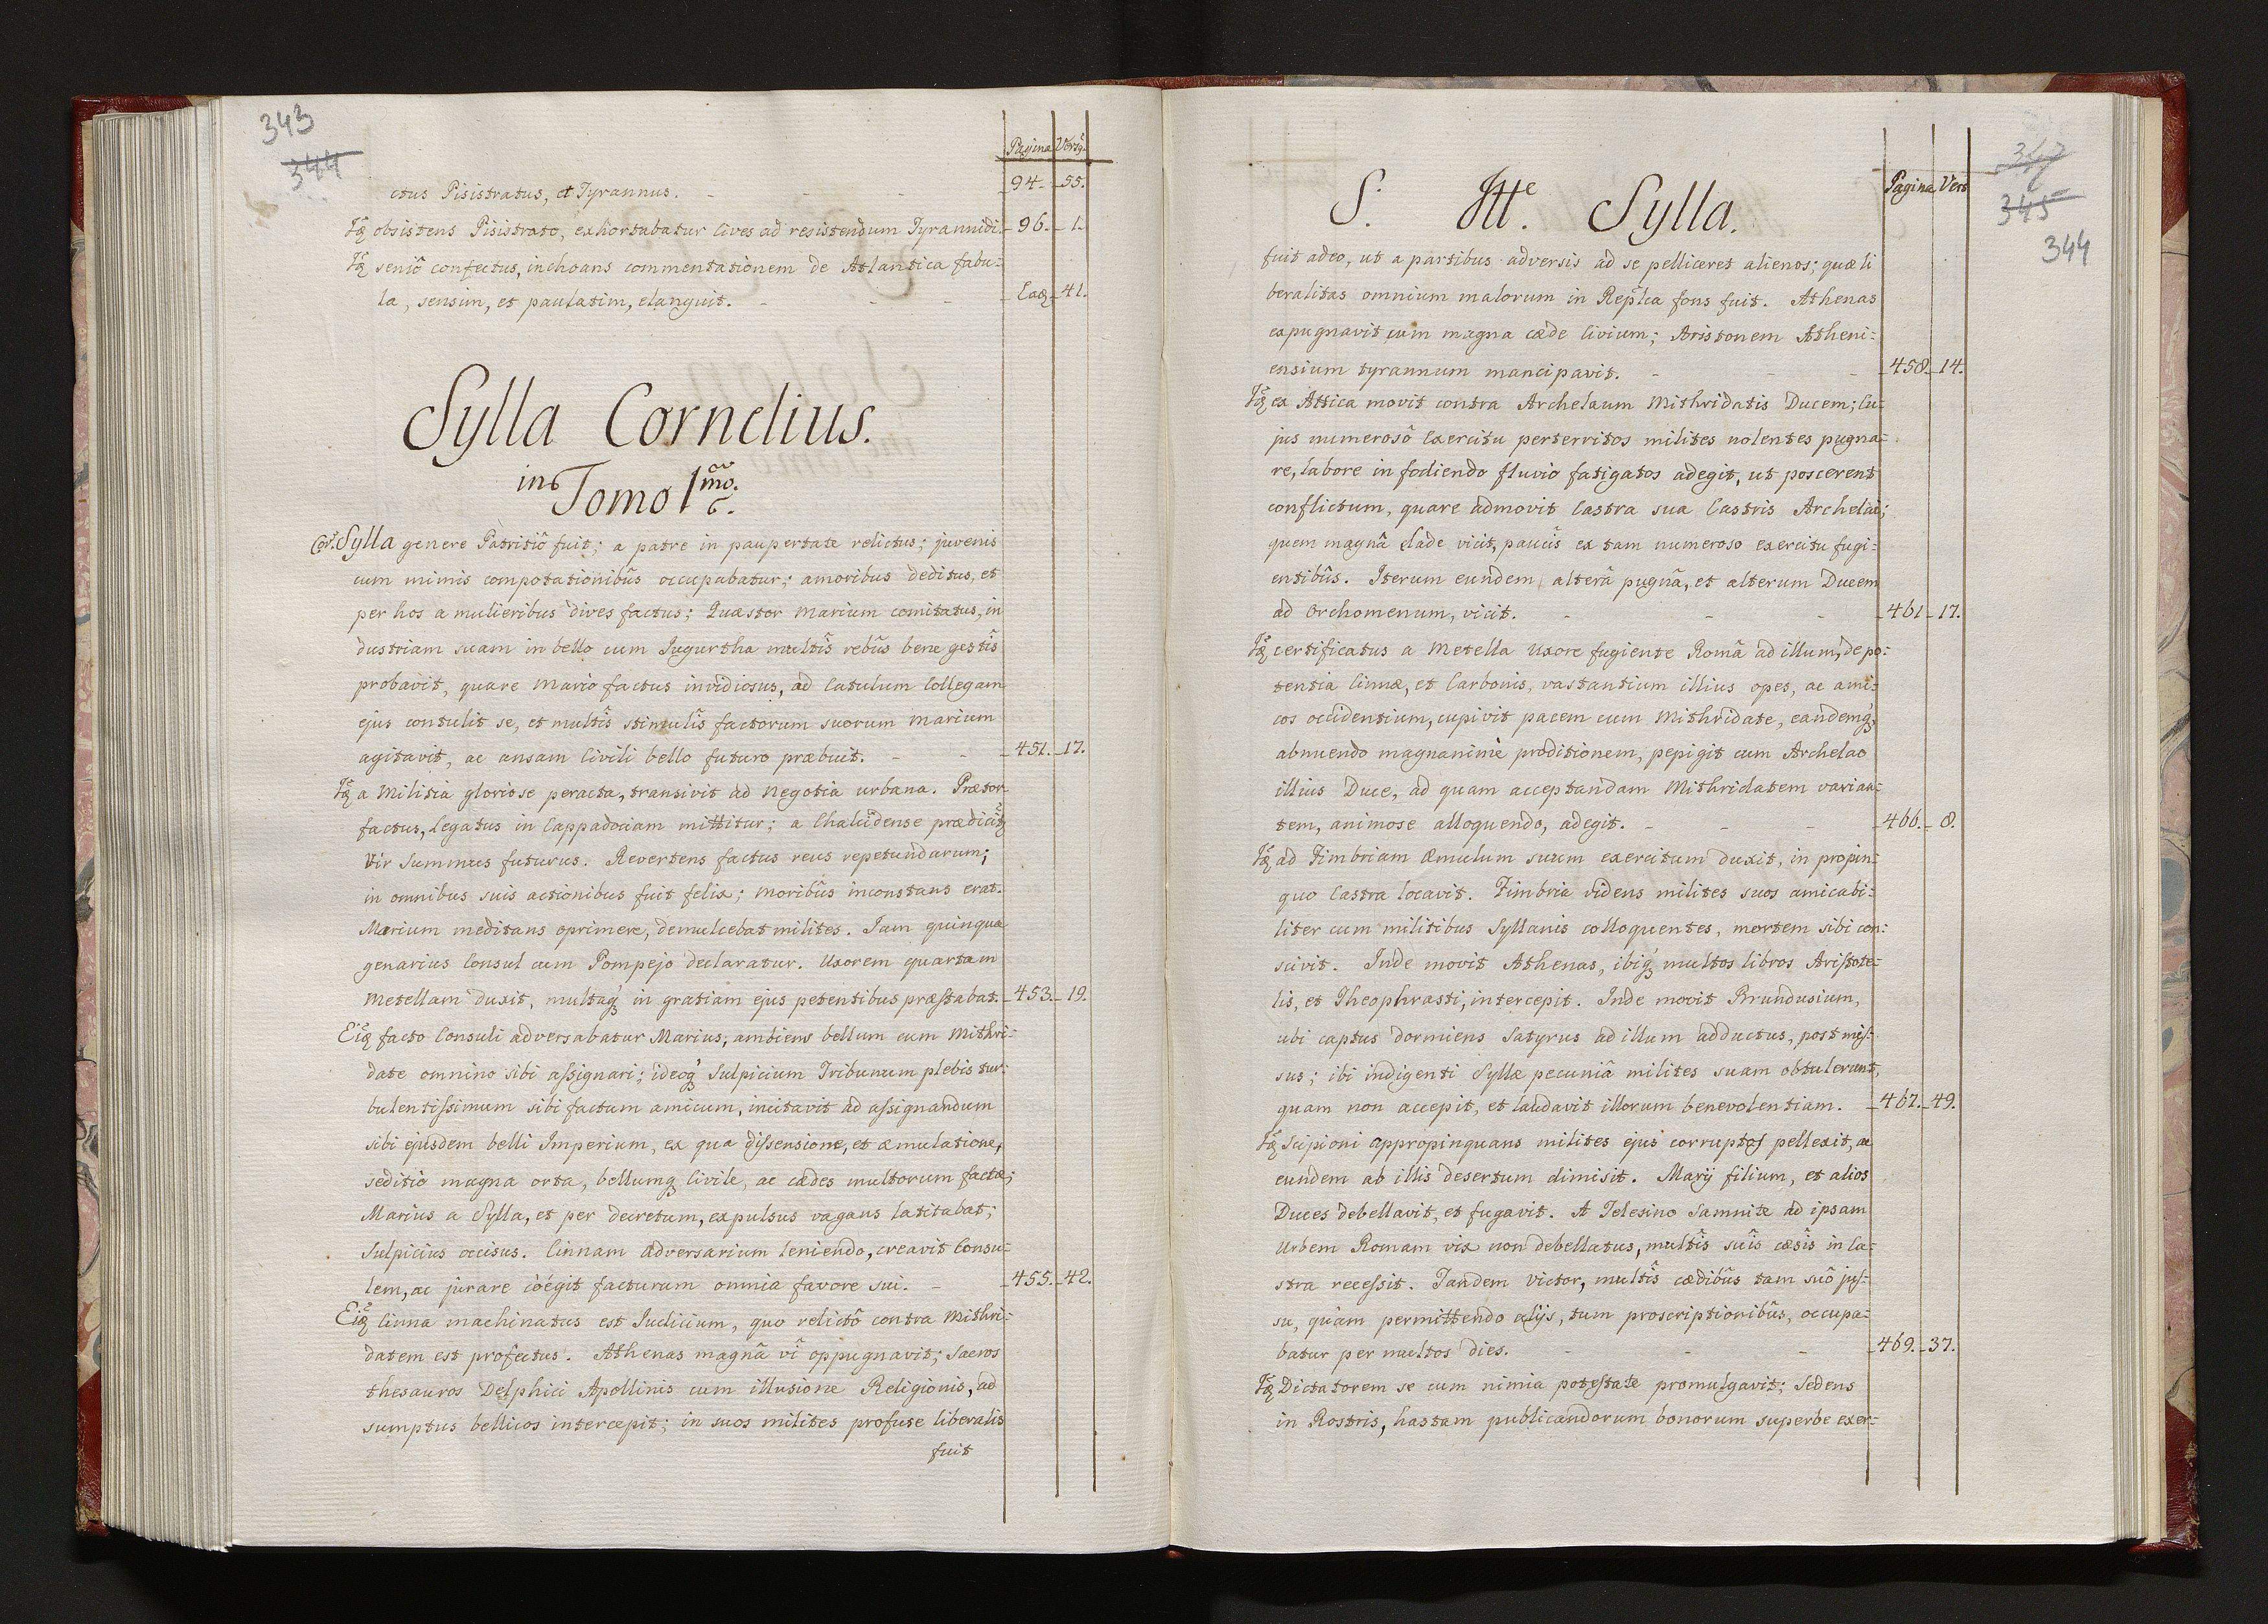 343
344
Pagina Versꝫ.
ctus Pisistratus, et Tyrannus. - - - 94. 55.
Iq̃ obsistens Pisistrato, exhortabatur Cives ad resistendum Tyrannidi. 96. 1.
Iq̃ seniô confectus, inchoans commentationem de Atlantica fabu=
la, sensim, et paulatim, elanguit. - - - Eaq̃ 41.
Sylla Cornelius.
in Tomo 1mo.
Cor. Sylla genere Patritiô fuit; a patre in paupertate relictus; juvenis
cum mimis compotationibûs occupabatur; amoribus deditus, et
per hos a mulieribus dives factus; Quæstor Marium comitatus, in
dustriam suam in bello cum Jugurtha multîs rebûs bene gestîs
probavit, quare Mario factus invidiosus, ad Catulum Collegam
ejus contulit se, et multîs stimulîs factorum suorum Marium
agitavit, ac ansam Civili bello futuro præbuit. - - 451. 17.
Iq̃ a Militia gloriose peracta, transivit ad negotia urbana. Prætor
factus, legatus in Cappadociam mittitur; a Chalcidense prædicitꝫ
Vir summus futurus. Revertens factus reus repetundarum;
in omnibus suis actionibus fuit felix; moribûs inconstans erat.
Marium meditans oprimere, demulcebat milites. Jam quinqua
genarius Consul cum Pompejo declaratur. Uxorem quartam
Metellam duxit, multaqꝫ in gratiam ejus petentibus præstabat. 453. 19.
Eiq̃ facto Consuli adversabatur Marius, ambiens bellum cum Mithri=
date omnino sibi assignari; ideoqꝫ Sulpicium Tribunum plebis tur=
bulentissimum sibi factum amicum, incitavit ad assignandum
sibi ejusdem belli Imperium, ex qua dissensione, et æmulatione,
seditio magna orta, bellumqꝫ Civile, ac cædes multorum factæ;
Marius a Sylla, et per decretum, expulsus vagans latitabat;
Sulpicius occisus. Cinnam adversarium leniendo, creavit Consu=
lem, ac jurare còégit facturum omnia favore sui. - 455. 42.
Eiq̃ Cinna machinatus est Judicium, quo relictô contra Mithri=
datem est profectus. Athenas magnâ vî oppugnavit; Sacros
thesauros Delphici Apollinis cum illusione Religionis, ad
sumptus bellicos intercepit; in suos milites profuse liberalis
fuit
S. Itte. Sylla.
Pagina Vers
345
344
fuit adeo, ut a partibus adversis ad se pelliceret alienos; quæ li
beralitas omnium malorum in Repl̃ca fons fuit. Athenas
expugnavit cum magna cæde Civium; Aristonem Atheni=
ensium tyrannum mancipavit. - - - 458. 14.
Iq̃ ex Attica movit contra Archelaum Mithridatis Ducem; Cu=
jus numerosô Exercitu perterritos milites nolentes pugna=
re, labore in fodiendo fluvio fatigatos adegit, ut poscerent
conflictum, quare admovit Castra sua Castris Archelai;
quem magnâ clade vicit, paucîs ex tam numeroso exercitu fugi=
entibûs. Iterum eundem alterâ pugnâ, et alterum Ducem
ad Orchomenum, vicit. - - - 461. 17.
Iq̃ certificatus a Metella Uxore fugiente Româ ad illum, de po=
tentia Cinnæ, et Carbonis, vastantium illius opes, ac ami=
cos occidentium, cupivit pacem cum Mithridate, eandemqꝫ
abnuendo magnanime proditionem, pepigit cum Archelao
illius Duce, ad quam acceptandam Mithridatem varian=
tem, animose alloquendo, adegit. - - - 466. 8.
Iq̃ ad Fimbriam æmulum suum exercitum duxit, in propin=
quo Castra locavit. Fimbria videns milites suos amicabi=
liter cum militibus Syllanis colloquentes, mortem sibi con=
scivit. Inde movit Athenas, ibiqꝫ multos libros Aristote=
lis, et Theophrasti, intercepit. Inde movit Brundusium,
ubi captus dormiens Satyrus ad illum adductus, post mis=
sus; ibi indigenti Syllæ pecuniâ milites suam obtulerunt,
quam non accepit, et laudavit illorum benevolentiam. 467. 49.
Iq̃ Scipioni appropinquans milites ejus corruptos pellexit, ac
eundem ab illis desertum dimisit. Marij filium, et alios
Duces debellavit, et fugavit. A Telesino Samnite ad ipsam
Urbem Romam vix non debellatus, multîs suîs cæsîs in Ca=
stra recessit. Tandem victor, multîs cædibûs tam suô jus=
su, quàm permittendo alijs, tum proscriptionibûs, occupa=
batur per multos dies. - - - 469. 37.
Iq̃ Dictatorem se cum nimia potestate promulgavit; Sedens
in Rostris, hastam publicandorum bonorum superbe exer=